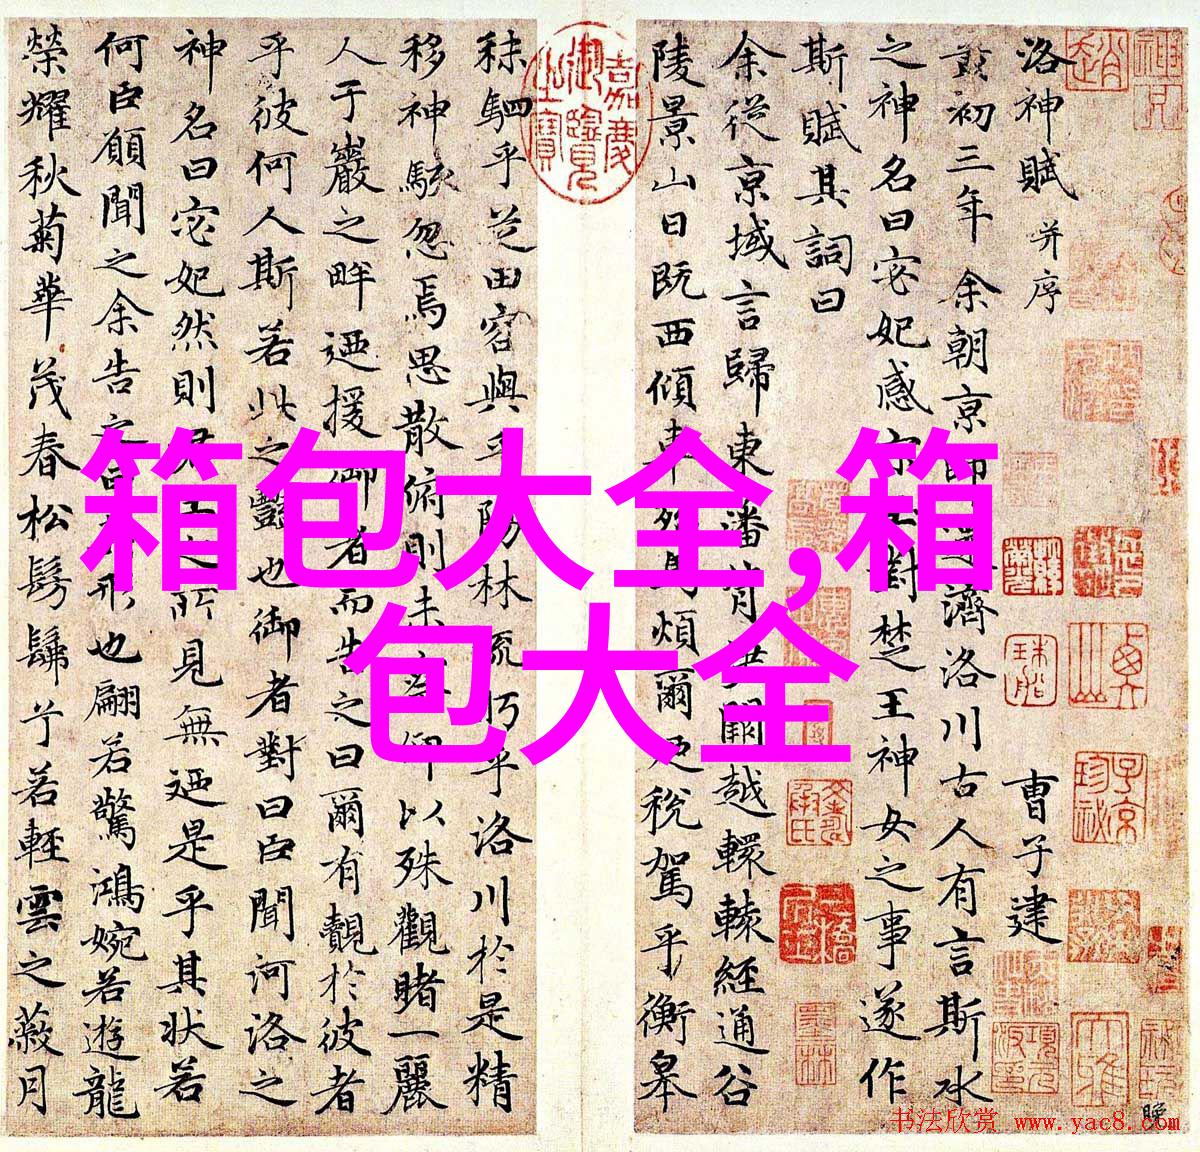 洛神賦 并序 曹子建
初三年余朝京師濟洛川古人有言斯水
之神名曰宓妃感宋對楚王神女之事遂作
斯賦其詞曰
余從京域言歸東潘背闕越轘轅經通谷
陵景山日既西傾車馬煩爾乃稅駕乎衡皋
嘉慶御覽之寶
秣駟乎芝田容與乎陽林流眄乎洛川於是精
移神駭忽焉思散俯則未察仰以殊觀睹一麗
人于巖之畔迺援御者而告之曰爾有覿於彼者
乎彼何人斯若此之豔也御者對曰臣聞河洛之
神名曰宓妃然則君王之所見無迺是乎其状若
何臣願聞之余告之曰形也翩若驚鴻婉若遊龍
榮耀秋菊華茂春松髣髴兮若輕雲之蔽月
箱包大全,箱
包大全
书法欣赏 www.yac8.com